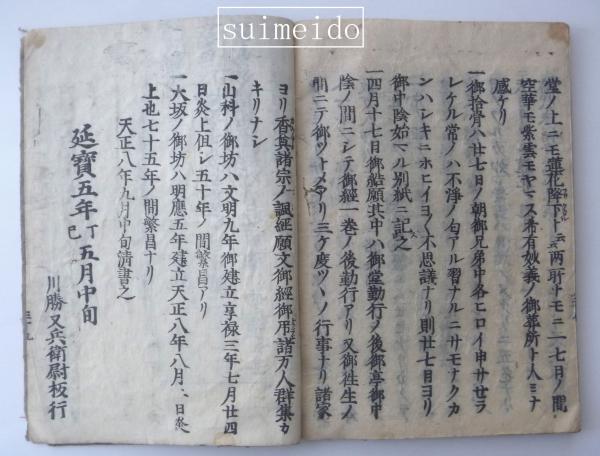 suimeido
堂ノ上ニモ蓮花降下ト云両所トモニ一七日ノ間
空華モ紫雲モヤマス希有妙義ノ御葬所ト人ミナ
感ケリ
一御拾骨ハ廿七日ノ朝御兄弟中各ヒロイ申サセラ
レケル常ノハ不浄ノ匂アル習ナルニサモナクカ
ンハシキニホヒイヨ〱不思議ナリ則廿七日ヨリ
御中陰始マル別紙ニ記之
一四月十七日御結願其中ハ御堂勤行ノ後御亭御中
陰ノ間ニシテ御経一巻ノ後勤行アリ又御往生ノ
間ニテ御ツトメアリ三ケ度ツヽノ行事ナリ諸家
ヨリ香奠諸宗ノ諷経願文御経御吊諸万人群集カ
キリナシ
一山科ノ御坊ハ文明九年御建立享禄三年七月廿四
日炎上但シ五十年ノ間繁昌アリ
一大坂ノ御坊ハ明應五年建立天正八年八月 日炎
上也七十五年ノ間繁昌ナリ
天正八年九月中旬清書之
延寶五年丁巳五月中旬
川勝又兵衛尉板行